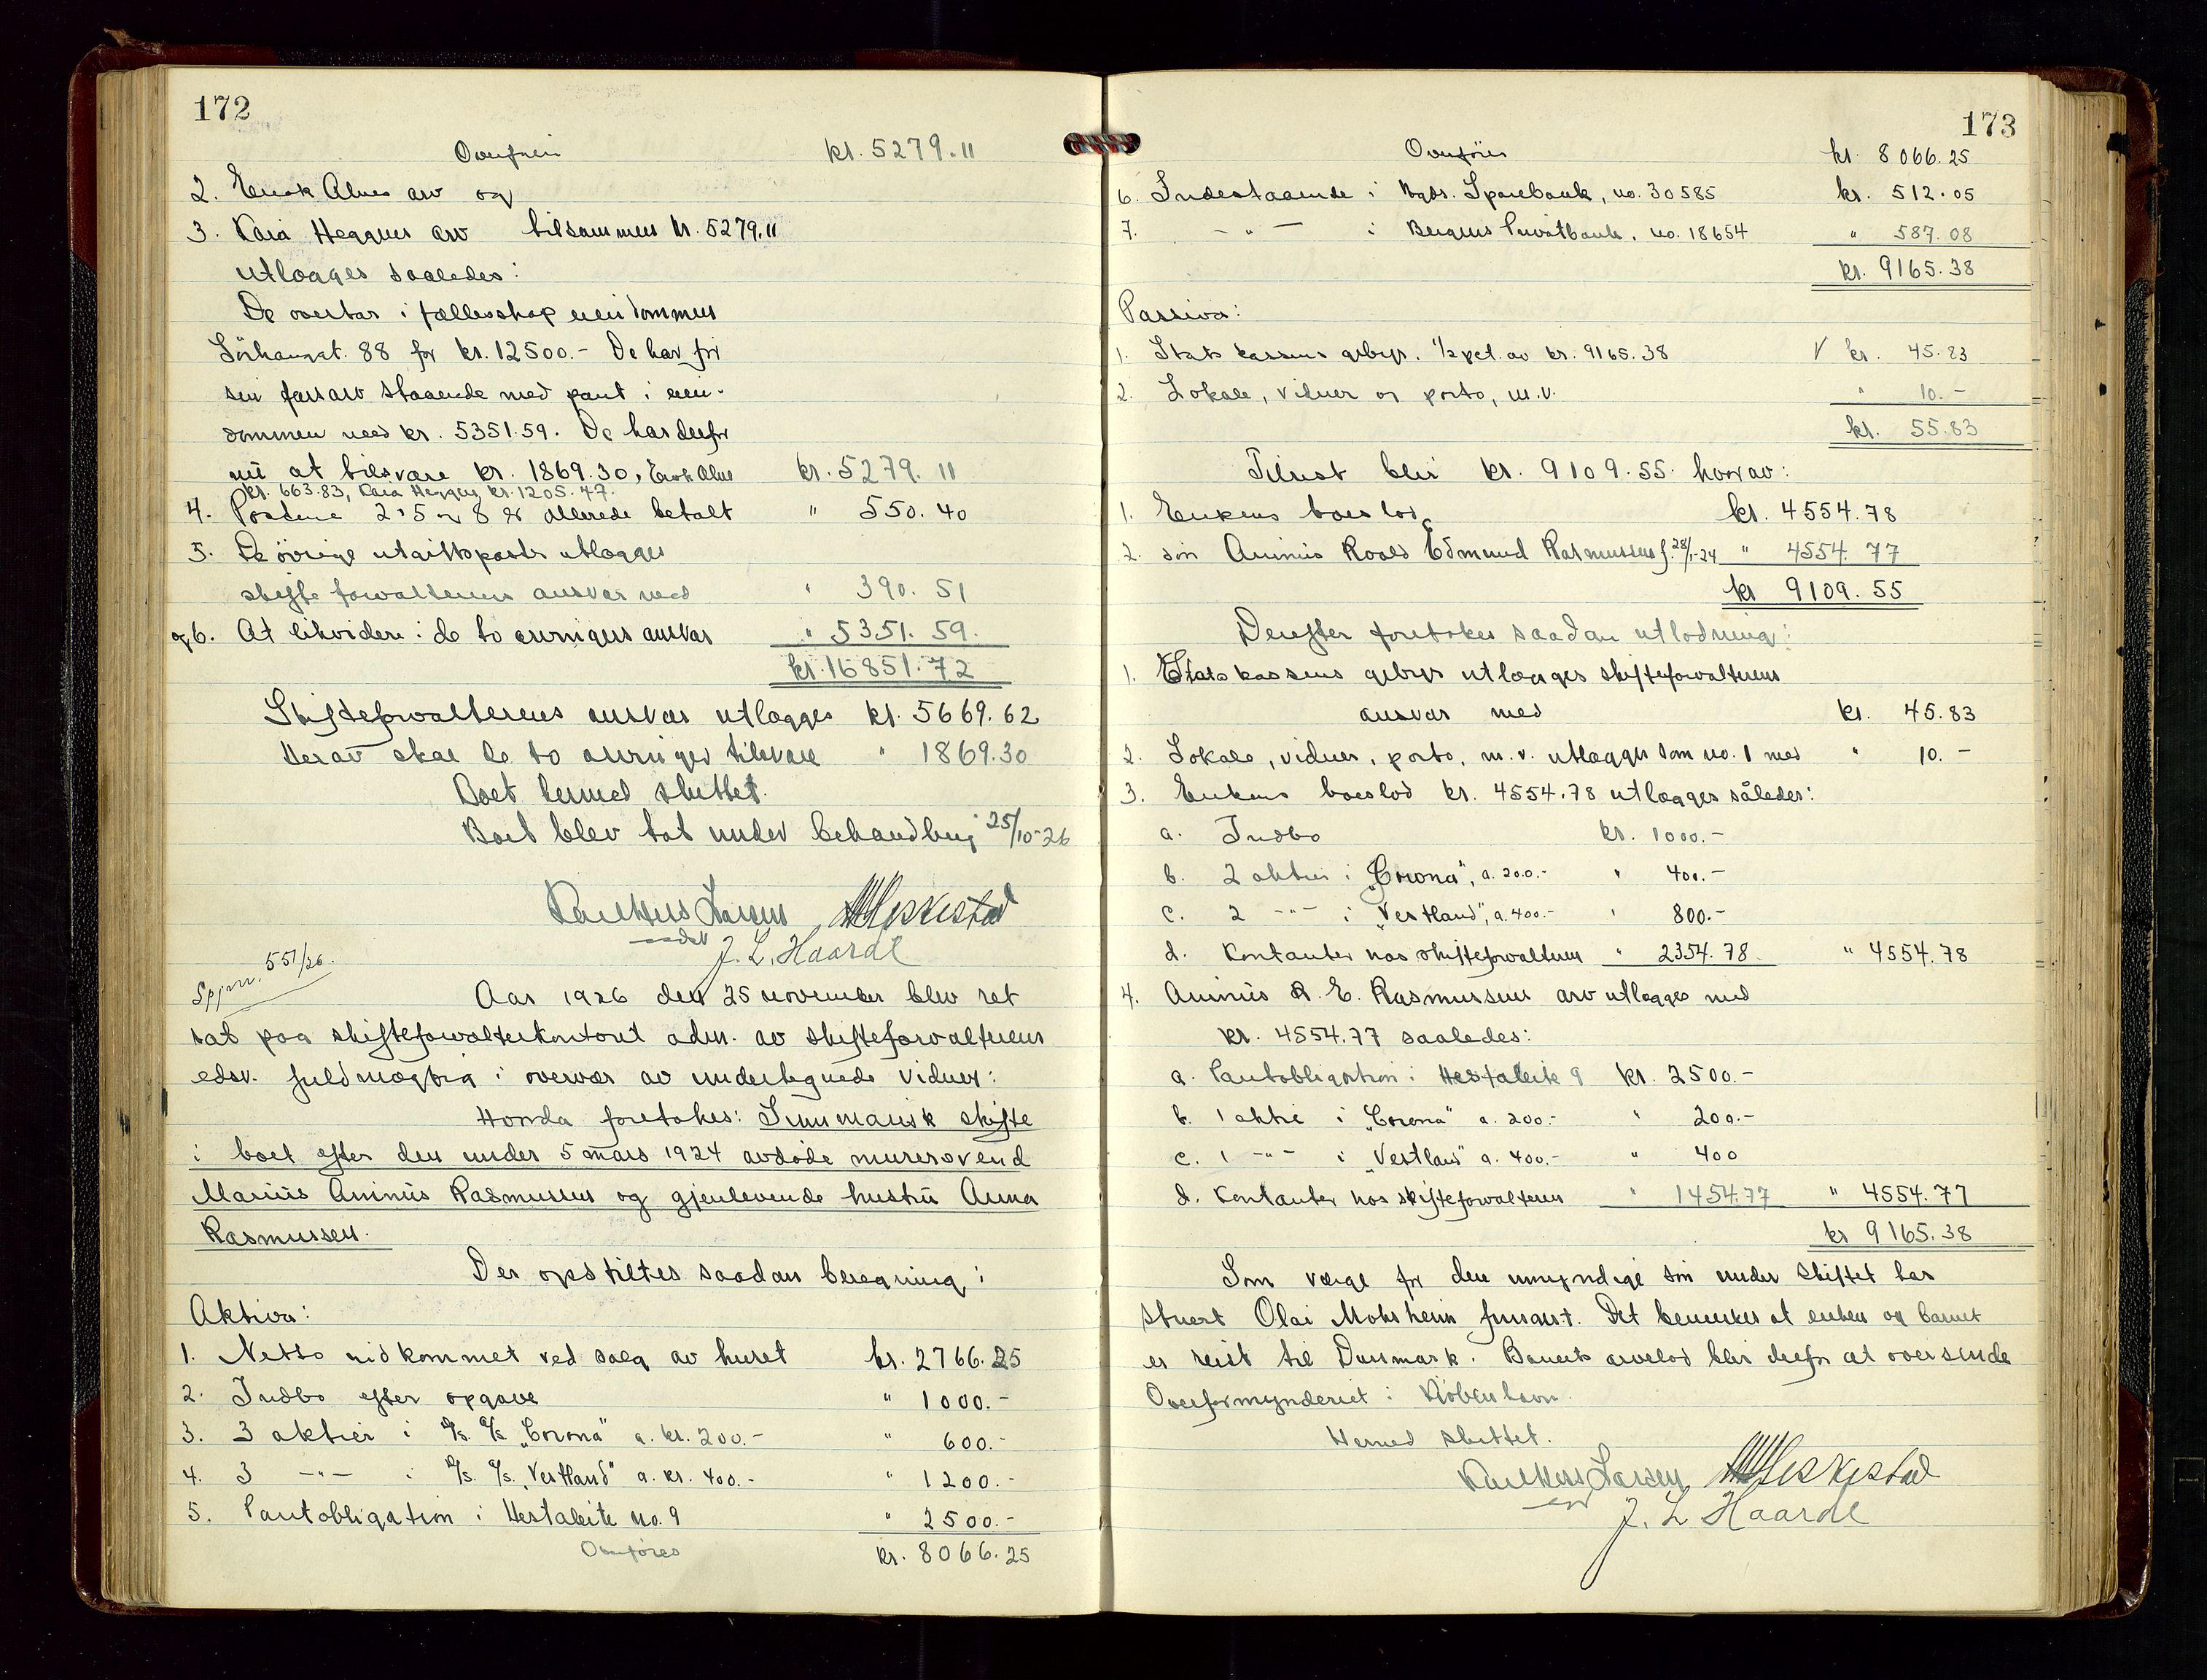 172
Overført kr. 5279.11
2. Enok Alnes arv og
3. Kaia Hegques arv tilsammen kr. 5279,11
utlægges saaledes:
De overtar i fællesskap eiendommen
Sörhauggt. 88 for kr. 12500.- De har for
sin farsarv staaende med pant i eien-
dommen med kr. 5351.59. De har derfor
nu at tilsvare kr. 1869.30, Enok Alnes kr. 5279.11
kr. 663.83, Kaia Hegques kr. 1205.47.
4. Postene 2, 5 og 8 er allerede betalt " 550.40
5. De övrige utgiftsposter utlægges
skifteforvalterens ansvar med " 390.51
og 6. At likvidere i de to arvingers ansvar " 5351.59.
kr. 16851.72
Skifteforvalterens ansvar utlægges kr. 5669.62
Herav skal de to arvinger tilsvare " 1869.30
Boet hermed sluttet.
Boet blev tat under behandling 25/10-26
Larsen Heskestad
J. L. Haardt
551/26.
Aar 1926 den 25 november blev ret
sat paa skifteforvalterkontoret adm. av skifteforvalterens
edsv. fuldmægtig i overvær av undertegnede vidner:
Hvorda foretokes: Summarisk skifte
i boet efter den under 5 mars 1924 avdöde murersvend
Marius Animus Rasmussen og gjenlevende hustru Anna
Rasmussen.
Der opstiltes saadan beregning:
Aktiva:
1. Netto indkommet ved salg av huset kr. 2766.25
2. Indbo efter opgave " 1000.-
3. 3 aktier i D/s. A/s. "Corona" a. kr. 200.- " 600.-
4. 3 -"- i D/s. A/s. "Vestland" a. kr. 400.- " 1200.-
5. Pantobligation i Hestaleite no. 9 " 2500.-
Overføres kr. 8066.25
173
Overføres kr. 8066.25
6. Indestaaende i Hgds. Sparebank, no. 30585 kr. 512.05
7. -"- i Bergens Privatbank, no. 18654 " 587.08
kr. 9165.38
Passiva:
1. Statskassens gebyr. 1/2 pct. av kr. 9165.38 V kr. 45.83
2. Lokale, vidner og porto, m.v. " 10.-
kr. 55.83
Tilrest blir kr. 9109.55 hvorav:
1. Enkens boeslod kr. 4554.78
2. sön Animus Roald Edmund Rasmussen f. 28/1-24 " 4554.77
kr 9109.55
Derefter foretokes saadan utlodning:
1. Statskassens gebyr utlægges skifteforvalterens
ansvar med kr. 45.83
2. Lokale, vidner, porto, m.v. utlægges som no. 1 med " 10.-
3. Enkens boeslod kr. 4554.78 utlægges således:
a. Indbo kr. 1000.-
b. 2 aktier i "Corona", a. 200.- " 400.-
c. 2 -"- i "Vestland", a. 400.- " 800.-
d. Kontanter hos skifteforvalteren " 2354.78 " 4554.78
4. Animus R. E. Rasmussens arv utlægges med
kr. 4554.77 saaledes:
a. Pantobligation i Hestaleite 9 kr. 2500.-
b. 1 aktie i "Corona" a. 200.- " 200.-
c. 1 -"- i "Vestland" a. 400.- " 400
d. Kontanter hos skifteforvalteren " 1454.77 " 4554.77
kr 9165.38
Som værge for den umyndige sön under skiftet har
stuert Olai Mohsheim fungert. Det bemerkes at enken og barnet
er reist til Danmark. Barnets arvelod blir derfor at oversende
Overformynderiet i Kjöbenhavn.
Hermed sluttet.
Larsen Heskestad
J. L Haardt